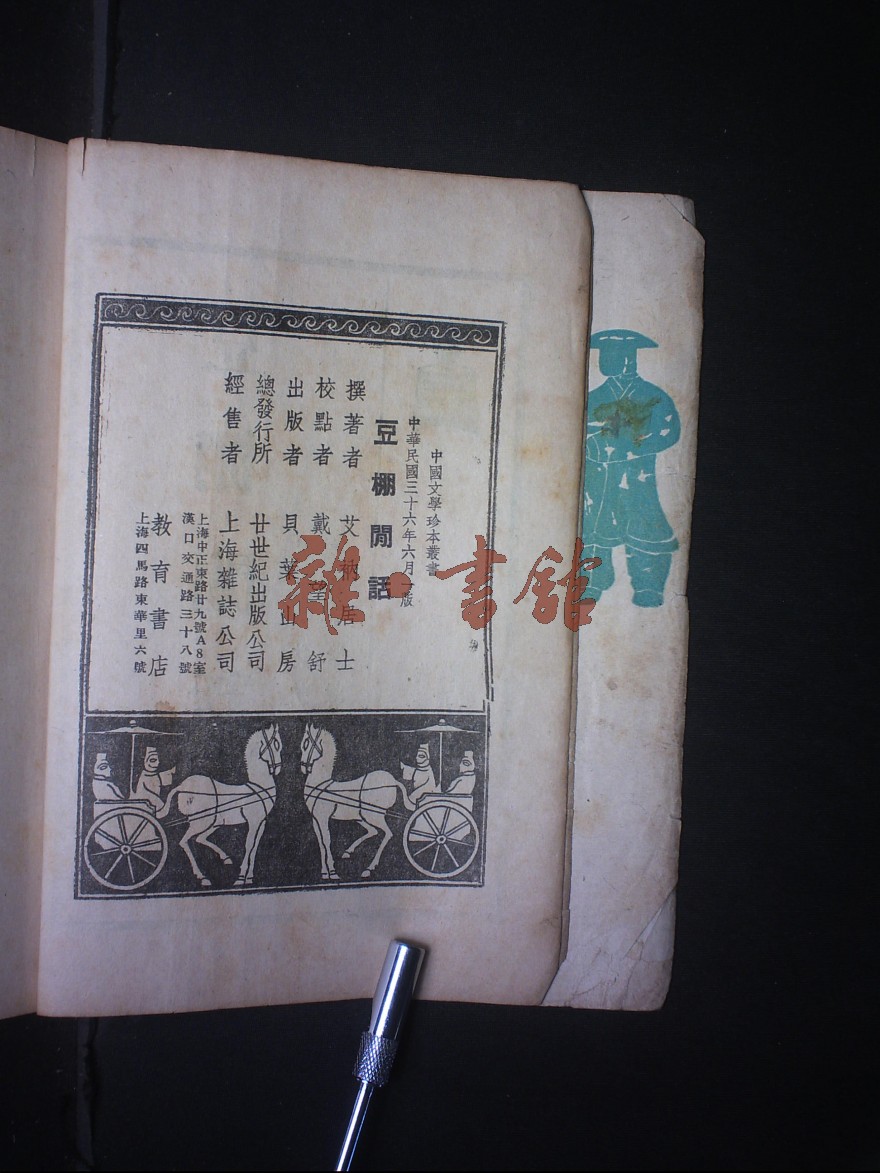 中國文學珍本叢書
中華民國三十六年六月一版
豆棚閒話
撰著者 艾衲居士
校點者 戴望舒
出版者 貝葉山房
總發行所 廿世紀出版公司
經售者 上海雜誌公司
上海中正東路廿九號A8室
漢口交通路三十八號
教育書店
上海四馬路東華里六號
雜·書館